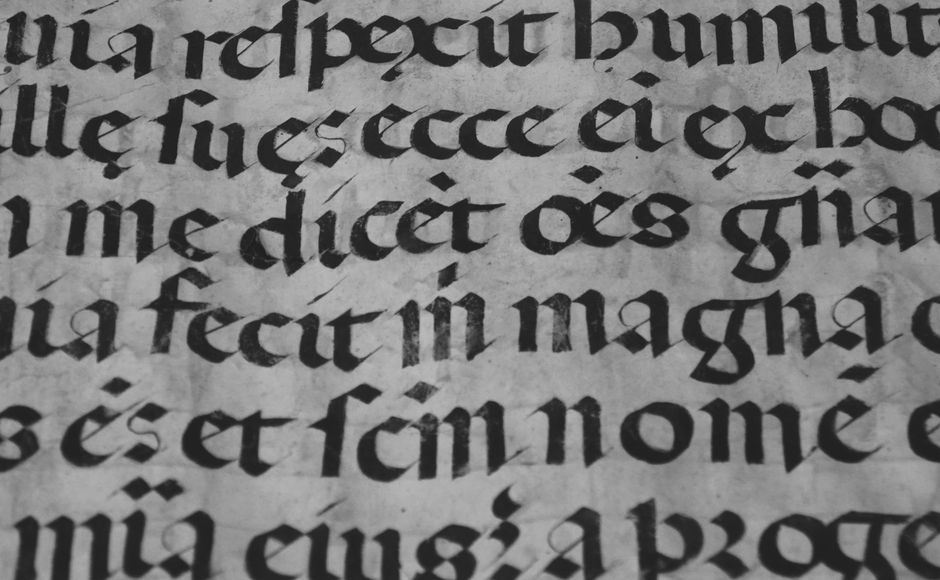 uia reſpexit humilit
illę ſuęs ecce ei ex hoc
me dicēt oēs gn̄a
uia fecit m magna
s ēs et ſcm nomē e
mīa eiusꝫ a proge